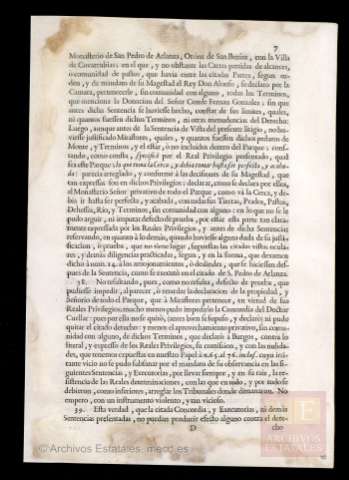 7
Monasterio de San Pedro de Arlanza, Orden de San Benito, con la Villa
de Covarrubias; en el que, y no obstante las Cartas perdidas de alcances,
ò comunidad de pastos, que havia entre las citadas Partes, segun or-
den, y de mandato de su Magestad el Rey Don Alonso, se declarò por la
Camara, pertenecerle, sin comunidad con alguno, todos los Terminos,
que menciona la Dotacion del Señor Conde Fernan Gonzalez; sin que
antes dicha Sentencia se huviesse, constar de sus limites, quales,
ni quantos fuessen dichos Terminos, ni otras menudencias del Derecho:
Luego, aunque antes de la Sentencia de Vista del presente litigio, no hu-
viesse justificado Miraflores, quales, y quantos fuessen dichos pedazos de
Monte, y Terminos, y el estàr, ò no incluidos dentro del Parque: cons-
tando, como consta,
parecia arreglado, y conforme à las decisiones de su Magestad, que
tan expressas son en dichos Privilegios; declarar, como se declara por ellos,
el Monasterio Señor privativo de todo el Parque, como và la Cerca, y de-
biò ir hasta ser perfecta, y acabada, con todas sus Tierras, Prados, Pastos,
Dehessa, Rio, y Terminos, sin comunidad con alguno: en lo que no se le
pudo arguir, ni imputar defecto de prueba, por estàr esta parte tan clara-
mente expressada por los Reales Privilegios, y antes de dicha Sentencia;
reservando, en quanto à lo demàs, quando huviesse alguna duda de su justi-
ficacion, ò prueba, que no tiene lugar, supuestas las citadas vistas ocula-
res, y demàs diligencias practicadas, segun, y en la forma, que dexamos
dicho à num. 14. à los amojonamientos, ò deslindes, que se hiciessen des-
pues de la Sentencia, como se executò en el citado de S. Pedro de Arlanza.
38. No resultando, pues, como no resulta, defecto de prueba, que
pudiesse impedir, al parecer, ò retardar la declaracion de la propiedad, y
Señorio de todo el Parque, que à Miraflores pertenece, en virtud de sus
Reales Privilegios; mucho menos pudo impedirlo la Concordia del Doctor
Cuellar: pues por ella no se quitò, (antes bien se supuso, y declarò) ni pudo
quitar el citado derecho: y menos el aprovechamiento privativo, sin comu-
nidad con alguno, de dichos Terminos, que declarò à Burgos, contra lo
literal, y expresso de los Reales Privilegios, su comission, y con las nulida-
des, que tenemos expuestas en nuestro Papel à n. 65. al 76. inclus. cuya irri-
tante vicio no se pudo subsanar por el mandato de su observancia en las si-
guientes Sentencias, y Executorias, por llevar siempre, y en su raìz, la re-
sistencia de las Reales determinaciones, con las que en todo, y por todo se
debieron, como inferiores, arreglar los Tribunales donde dimanaron. No
empero, con un instrumento violento, y tan vicioso.
39. Esta verdad, que la citada Concordia, y Executorias, ni demàs
Sentencias presentadas, no puedan producir efecto alguno contra el dere-
D
cho
© Archivos Estatales, mecd.es
E
ARCHIVOS
ESTATALES